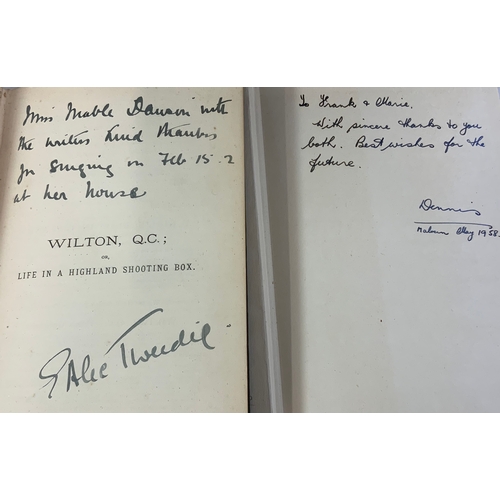 Miss Mable Dawson with
the writers kind thanks
for singing on Feb 15. 2
at her house
WILTON, Q.C.;
OR,
LIFE IN A HIGHLAND SHOOTING BOX.
E Alec Tweedie
To Frank & Marie,
With sincere thanks to you
both. Best wishes for the
future.
Dennis
May 1958.